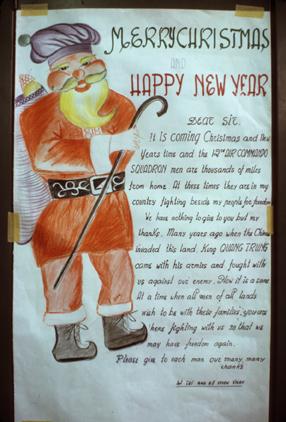 MERRY CHRISTMAS
AND
HAPPY NEW YEAR
Dear Sir.
It is coming Christmas and New
Years time and the 12th AIR COMMANDO
SQUADRON men are thousands of miles
from home. At these times they are in my
country fighting beside my people for freedom
We have nothing to give to you but my
thanks. Many years ago when the Chinese
invaded this land, King QUANG TRUNG
came with his armies and fought with
us against our enemy. Now it is same
At a time when all men of all lands
wish to be with their families, you are
here fighting with us so that we
may have freedom again.
Please give to each man our many, many
thanks